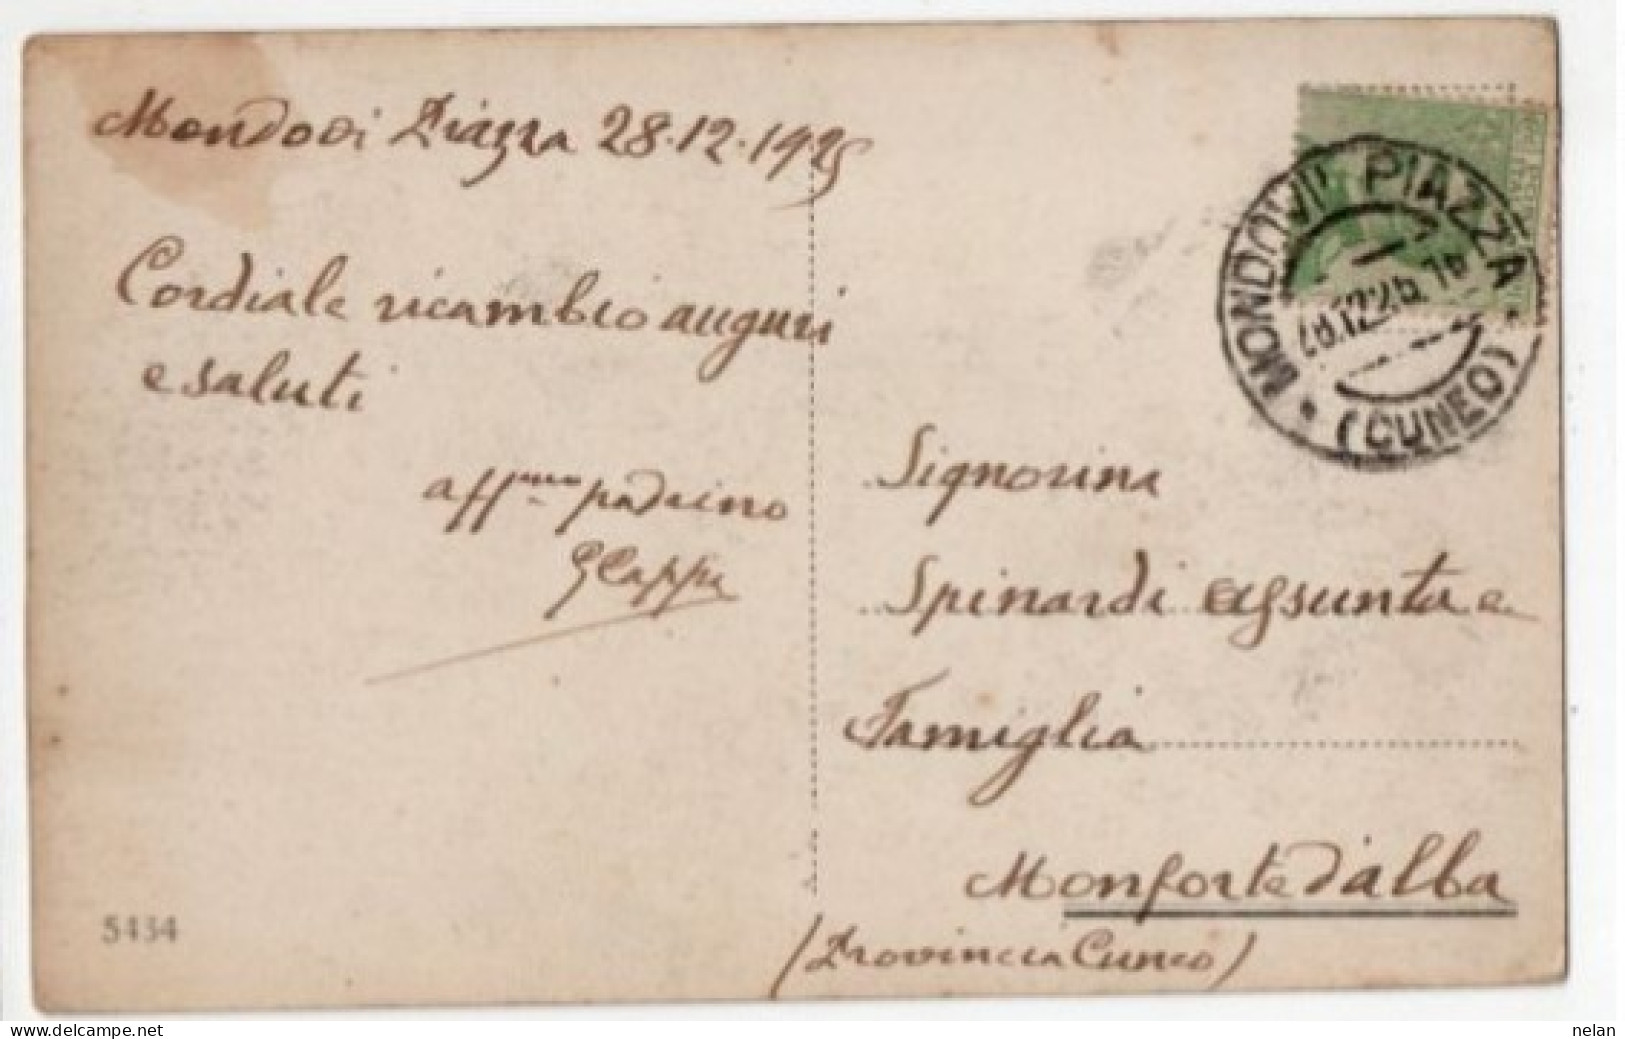 Mondovi Piazza 28.12.1925
Cordiale ricambio auguri
e saluti
aff.mo padrino
MONDOVI' PIAZZA
28.12.25.16
(CUNEO)
Signorina
Spinardi Assunta e
Famiglia
Monforte d'alba
(Provincia Cuneo)
5434
delcampe.net
nelan